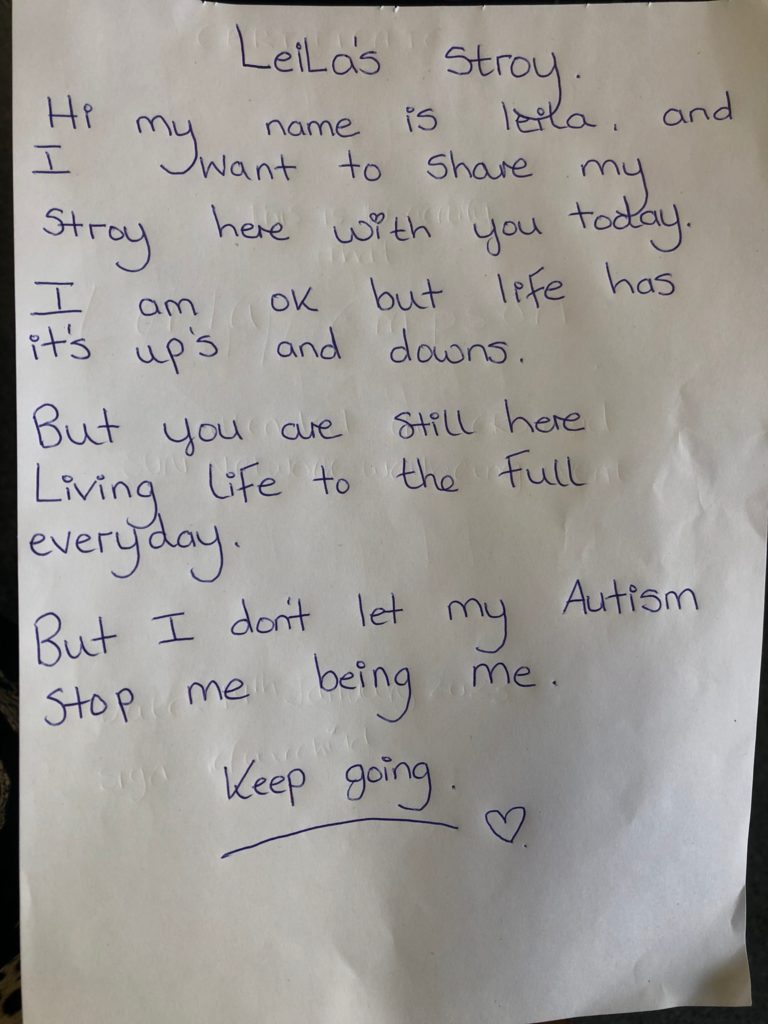 LeiLa's Stroy.
Hi my name is leila. and
I want to share my
Stroy here with you today.
I am ok but life has
it's up's and downs.
But you are still here
Living life to the full
everyday.
But I don't let my Autism
Stop me being me.
Keep going.